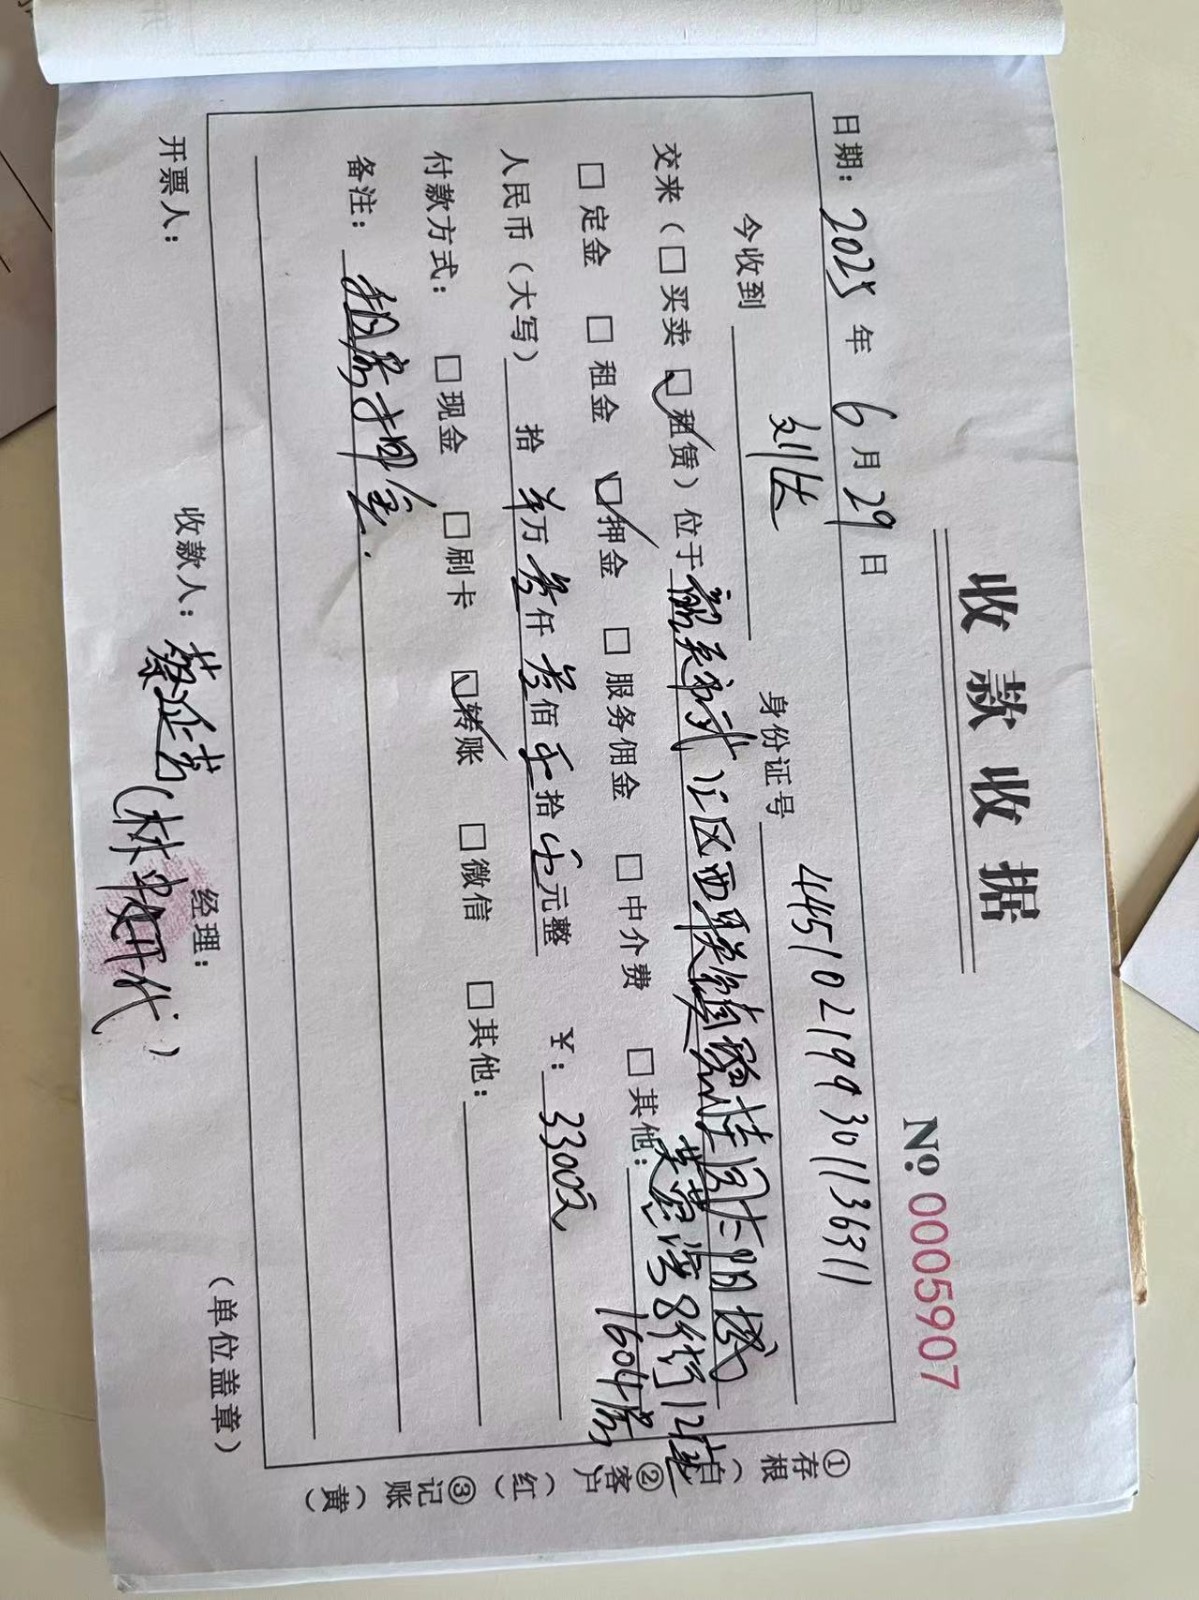 收款收据
№ 0005907
日期：2025年6月29日
今收到 刘达 身份证号 445102199301136311
交来（□买卖 ☑租赁）位于 区西联镇 桂园太阳城
8街12座
1604房
□定金 □租金 ☑押金 □服务佣金 □中介费 □其他：
人民币（大写） 拾 万 叁仟 叁佰 零拾 零元整 ￥：3300元
付款方式： □现金 □刷卡 ☑转账 □微信 □其他：
备注： 租房押金.
开票人： 收款人： 经理： （单位盖章）
①存根（白） ②客户（红） ③记账（黄）